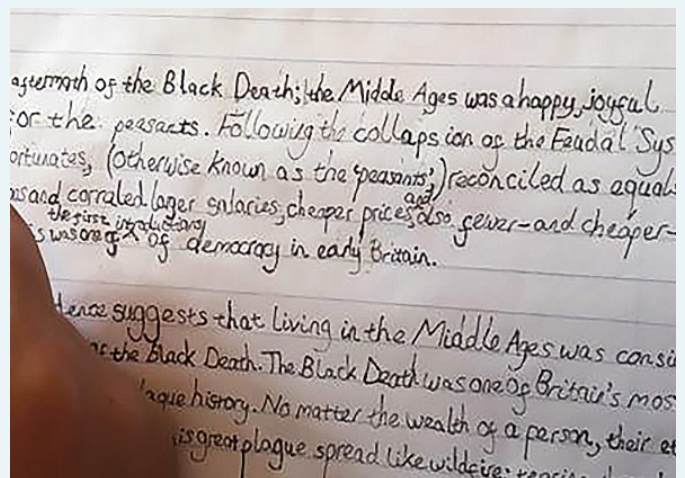 aftermath of the Black Death; the Middle Ages was a happy, joyful
for the peasants. Following the collapsion of the Feudal Sys
ortunates, (otherwise known as the 'peasants',) reconciled as equal
ns and corraled lager salaries, cheaper prices, and also fewer-and cheaper-
s was one of the first introductory of democracy in early Britain.
dence suggests that living in the Middle Ages was consi
of the Black Death. The Black Death was one of Britain's mos
lague history. No matter the wealth of a person, their et
is great plague spread like wildfire: